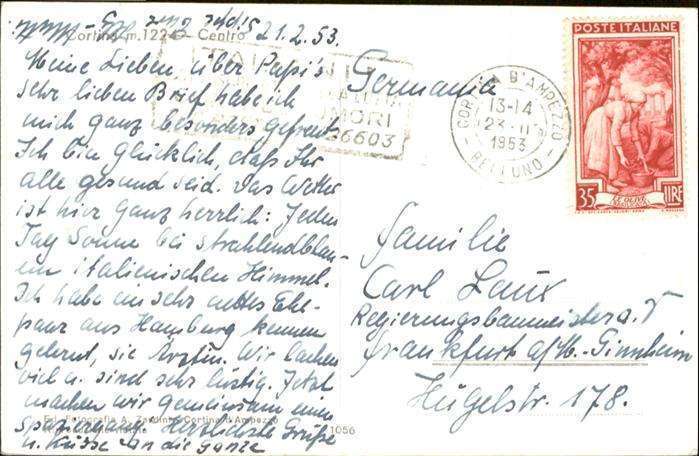 Cortina m. 1224 - Centro
21.2.53.
Meine Lieben, über Papi's
sehr lieben Brief habe ich
mich ganz besonders gefreut.
Ich bin glücklich, daß Ihr
alle gesund seid. Das Wetter
ist hier ganz herrlich: Jeden
Tag Sonne bei strahlendblau-
em italienischen Himmel.
Ich habe ein sehr nettes Ehe-
paar aus Hamburg kennen
gelernt, sie Ärztin. Wir lachen
viel u. sind sehr lustig. Jetzt
machen wir gemeinsam einen
Spaziergang. Herzlichste Grüße
u. Küsse an die ganze
Ed. Fotografia A. Zardini Cortina d'Ampezzo
1056
MORI
6603
Germania
CORTINA D'AMPEZZO
13-14
23.II
1953
BELLUNO
POSTE ITALIANE
35 LIRE
LE OLIVE
Familie
Carl Laux
Regierungsbaumeister a. D
Frankfurt a/M.-Ginnheim
Hügelstr. 178.